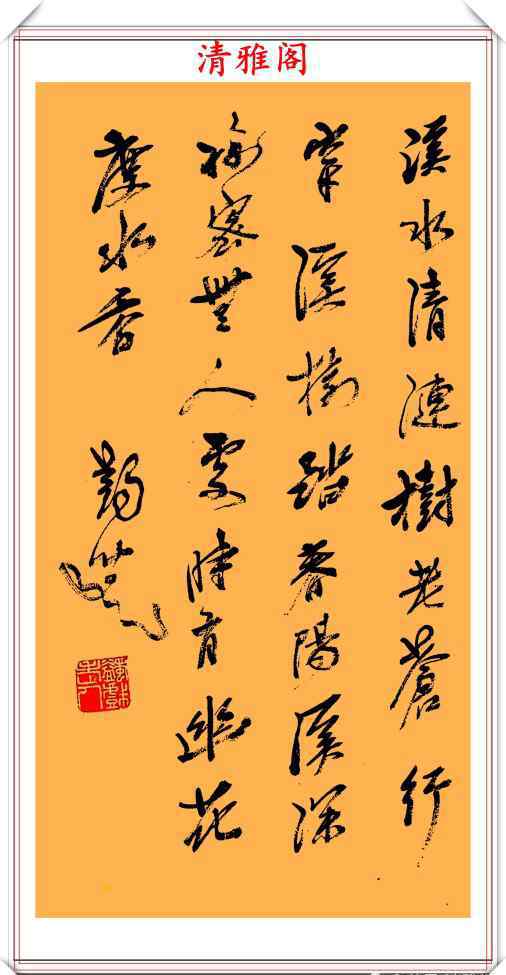 清雅阁
溪水清漣樹老蒼行
穿溪樹踏春陽溪深
樹密無人處時有幽花
度水香